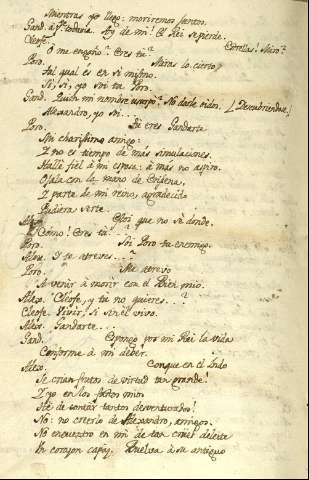 Mientras yo llego: moriremos juntos.
Gand. à Pº todavia. Ay de mi! El Rei se pierde.
Cleofe. Estrellas! Miro?
O me engaño? Eres tu?
Poro. Miras lo cierto,
Tal qual és en si mismo.
Si, si, yo soi tu Poro.
Gand. Quien mi nombre usurpò? No darle oidos. (Descubriendose)
Alexandro, yo soi...
Poro. Tu eres Gandarte
Mi charissimo amigo:
Y no es tiempo de más simulaciones.
Hallè fiel à mi esposa: à mas no aspiro.
Ojala con la mano de Erixena,
Y parte de mi reino, agradecido
Pudiera serte.
Alexo. Estoi que no sè donde.
Como! Eres tu...?
Poro. Soi Poro tu enemigo.
Alexo. Y te atreves...?
Poro. Me atrevo
A venir à morir con el Bien mio.
Alexo. Cleofe, y tu no quieres...?
Cleofe. Vivir, si sin el vivo.
Alexo. Gandarte...
Gand. Expongo por mi Rei la vida
Conforme à mi deber.
Alexo. Conque en el Indo
Se crian frutos de virtud tan grande!
Y yo en los fastos mios
Hé de contar tantos desventurados!
No: no creerlo de Alexandro, amigos.
No encuentro en mi de tan cruel deleite
Un corazon capáz. Vuelva à su antiguo